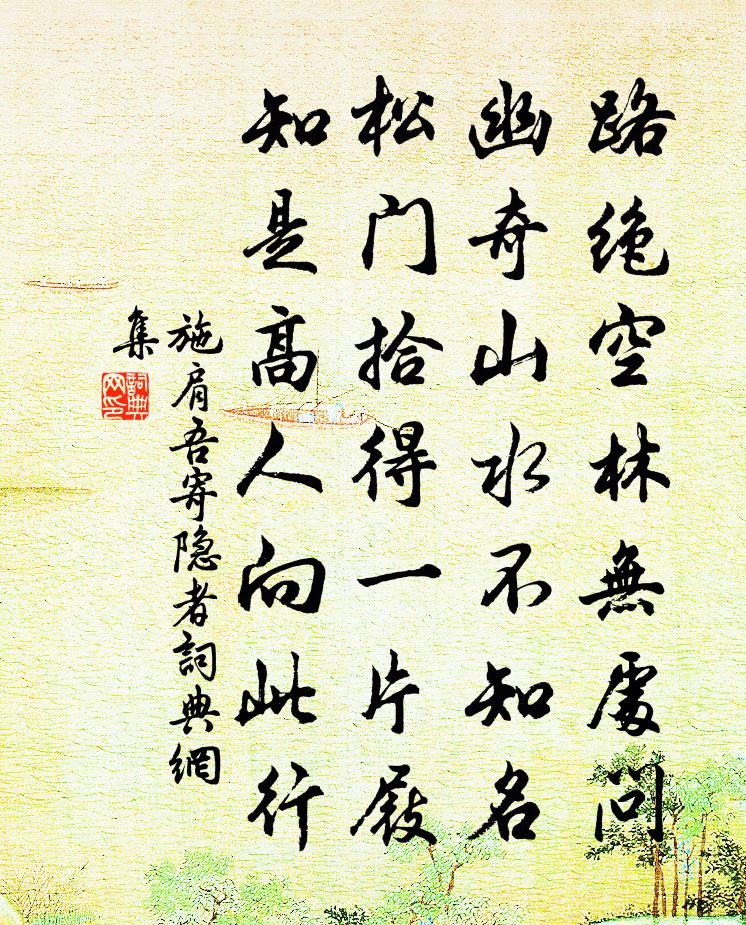 路绝空林無處問
幽奇山水不知名
松门拾得一片屐
知是高人向此行
施肩吾寄隐者詞典網
集
詞典網印